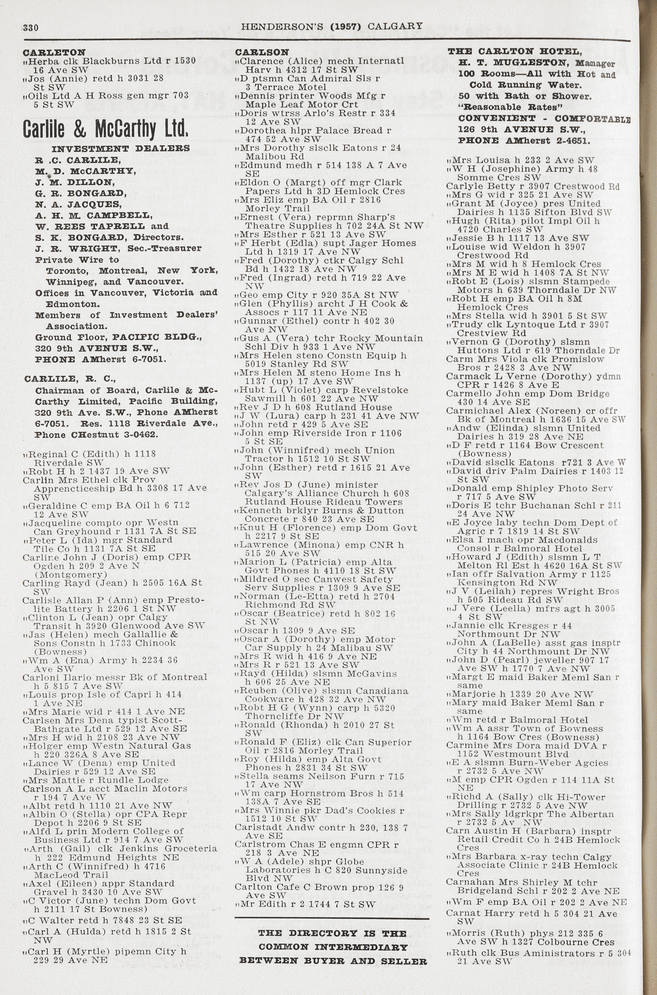 330
HENDERSON'S (1957) CALGARY
CARLETON
"Herba clk Blackburns Ltd r 1530
16 Ave SW
"Jos (Annie) retd h 3031 28
St SW
"Oils Ltd A H Ross gen mgr 703
5 St SW
Carlile & McCarthy Ltd.
INVESTMENT DEALERS
R .C. CARLILE,
M. D. McCARTHY,
J. M. DILLON,
G. R. BONGARD,
N. A. JACQUES,
A. H. M. CAMPBELL,
W. REES TAPRELL and
S. K. BONGARD, Directors.
J. R. WRIGHT, Sec.-Treasurer
Private Wire to
Toronto, Montreal, New York,
Winnipeg, and Vancouver.
Offices in Vancouver, Victoria and
Edmonton.
Members of Investment Dealers'
Association.
Ground Floor, PACIFIC BLDG.,
320 9th AVENUE S.W.,
PHONE AMherst 6-7051.
CARLILE, R. C.,
Chairman of Board, Carlile & Mc-
Carthy Limited, Pacific Building,
320 9th Ave. S.W., Phone AMherst
6-7051. Res. 1118 Riverdale Ave.,
Phone CHestnut 3-0462.
"Reginal C (Edith) h 1118
Riverdale SW
"Robt H h 2 1437 19 Ave SW
Carlin Mrs Ethel clk Prov
Apprenticeship Bd h 3308 17 Ave
SW
"Geraldine C emp BA Oil h 6 712
12 Ave SW
"Jacqueline compto opr Westn
Can Greyhound r 1131 7A St SE
"Peter L (Ida) mgr Standard
Tile Co h 1131 7A St SE
Carline John J (Doris) emp CPR
Ogden h 209 2 Ave N
(Montgomery)
Carling Rayd (Jean) h 2505 16A St
SW
Carlisle Allan P (Ann) emp Presto-
lite Battery h 2206 1 St NW
"Clinton L (Jean) opr Calgy
Transit h 3920 Glenwood Ave SW
"Jas (Helen) mech Gallallie &
Sons Constn h 1733 Chinook
(Bowness)
"Wm A (Ena) Army h 2234 36
Ave SW
Carloni Ilario messr Bk of Montreal
h 5 815 7 Ave SW
"Louis prop Isle of Capri h 414
1 Ave NE
"Mrs Marie wid r 414 1 Ave NE
Carlsen Mrs Dena typist Scott-
Bathgate Ltd r 529 12 Ave SE
"Mrs H wid h 2108 23 Ave NW
"Holger emp Westn Natural Gas
h 220 326A 8 Ave SE
"Lance W (Dena) emp United
Dairies r 529 12 Ave SE
"Mrs Mattie r Rundle Lodge
Carlson A L acct Maclin Motors
r 194 7 Ave W
"Albt retd h 1110 21 Ave NW
"Albin O (Stella) opr CPA Repr
Depot h 2206 9 St SE
"Alfd L prin Modern College of
Business Ltd r 914 7 Ave SW
"Arth (Gail) clk Jenkins Groceteria
h 222 Edmund Heights NE
"Arth C (Winnifred) h 4716
MacLeod Trail
"Axel (Eileen) appr Standard
Gravel h 3430 10 Ave SW
"C Victor (June) techn Dom Govt
h 2111 17 St Bowness)
"C Walter retd h 7848 23 St SE
"Carl A (Hulda) retd h 1815 2 St
NW
"Carl H (Myrtle) pipemn City h
229 29 Ave NE
CARLSON
"Clarence (Alice) mech Internatl
Harv h 4312 17 St SW
"D ptsmn Can Admiral Sls r
3 Terrace Motel
"Dennis printer Woods Mfg r
Maple Leaf Motor Crt
"Doris wtrss Arlo's Restr r 334
12 Ave SW
"Dorothea hlpr Palace Bread r
474 52 Ave SW
"Mrs Dorothy slsclk Eatons r 24
Malibou Rd
"Edmund medh r 514 138 A 7 Ave
SE
"Eldon O (Margt) off mgr Clark
Papers Ltd h 3D Hemlock Cres
"Mrs Eliz emp BA Oil r 2816
Morley Trail
"Ernest (Vera) reprmn Sharp's
Theatre Supplies h 702 24A St NW
"Mrs Esther r 521 13 Ave SW
"F Herbt (Edla) supt Jager Homes
Ltd h 1319 17 Ave NW
"Fred (Dorothy) ctkr Calgy Schl
Bd h 1432 18 Ave NW
"Fred (Ingrad) retd h 719 22 Ave
NW
"Geo emp City r 920 35A St NW
"Glen (Phyllis) archt J H Cook &
Assocs r 117 11 Ave NE
"Gunnar (Ethel) contr h 402 30
Ave NW
"Gus A (Vera) tchr Rocky Mountain
Schl Div h 933 1 Ave NW
"Mrs Helen steno Constn Equip h
5019 Stanley Rd SW
"Mrs Helen M steno Home Ins h
1137 (up) 17 Ave SW
"Hubt L (Violet) carp Revelstoke
Sawmill h 601 22 Ave NW
"Rev J D h 608 Rutland House
"J W (Lura) carp h 231 41 Ave NW
"John retd r 429 5 Ave SE
"John emp Riverside Iron r 1106
5 St SE
"John (Winnifred) mech Union
Tractor h 1512 10 St SW
"John (Esther) retd r 1615 21 Ave
SW
"Rev Jos D (June) minister
Calgary's Alliance Church h 608
Rutland House Rideau Towers
"Kenneth brklyr Burns & Dutton
Concrete r 840 23 Ave SE
"Knut H (Florence) emp Dom Govt
h 2217 9 St SE
"Lawrence (Minona) emp CNR h
515 20 Ave SW
"Marion L (Patricia) emp Alta
Govt Phones h 4110 18 St SW
"Mildred O sec Canwest Safety
Serv Supplies r 1309 9 Ave SE
"Norman (Le-Etta) retd h 2704
Richmond Rd SW
"Oscar (Beatrice) retd h 802 16
St NW
"Oscar h 1309 9 Ave SE
"Oscar A (Dorothy) emp Motor
Car Supply h 24 Malibau SW
"Mrs R wid h 416 9 Ave NE
"Mrs R r 521 13 Ave SW
"Rayd (Hilda) slsmn McGavins
h 606 25 Ave NE
"Reuben (Olive) slsmn Canadiana
Cookware h 428 32 Ave NW
"Robt H G (Wynn) carp h 5320
Thorncliffe Dr NW
"Ronald (Rhonda) h 2010 27 St
SW
"Ronald F (Eliz) clk Can Superior
Oil r 2816 Morley Trail
"Roy (Hilda) emp Alta Govt
Phones h 2831 34 St SW
"Stella seams Neilson Furn r 715
17 Ave NW
"Wm carp Hornstrom Bros h 514
138A 7 Ave SE
"Mrs Winnie pkr Dad's Cookies r
1512 10 St SW
Carlstadt Andw contr h 230, 138 7
Ave SE
Carlstrom Chas E engmn CPR r
218 3 Ave NE
"W A (Adele) shpr Globe
Laboratories h C 820 Sunnyside
Blvd NW
Carlton Cafe C Brown prop 126 9
Ave SW
"Mr Edith r 2 1744 7 St SW
THE DIRECTORY IS THE
COMMON INTERMEDIARY
BETWEEN BUYER AND SELLER
THE CARLTON HOTEL,
H. T. MUGLESTON, Manager
100 Rooms—All with Hot and
Cold Running Water.
50 with Bath or Shower.
"Reasonable Rates"
CONVENIENT - COMFORTABLE
126 9th AVENUE S.W.,
PHONE AMherst 2-4651.
"Mrs Louisa h 233 2 Ave SW
"W H (Josephine) Army h 48
Somme Cres SW
Carlyle Betty r 3907 Crestwood Rd
"Mrs G wid r 325 21 Ave SW
"Grant M (Joyce) pres United
Dairies h 1135 Sifton Blvd SW
"Hugh (Rita) pilot Impl Oil h
4720 Charles SW
"Jessie B h 1117 13 Ave SW
"Louise wid Weldon h 3907
Crestwood Rd
"Mrs M wid h 8 Hemlock Cres
"Mrs M E wid h 1408 7A St NW
"Robt E (Lois) slsmn Stampede
Motors h 639 Thorndale Dr NW
"Robt H emp BA Oil h 8M
Hemlock Cres
"Mrs Stella wid h 3901 5 St SW
"Trudy clk Lyntoque Ltd r 3907
Crestview Rd
"Vernon G (Dorothy) slsmn
Huttons Ltd r 619 Thorndale Dr
Carm Mrs Viola clk Promislow
Bros r 2428 3 Ave NW
Carmack L Verne (Dorothy) ydmn
CPR r 1426 8 Ave E
Carmello John emp Dom Bridge
430 14 Ave SE
Carmichael Alex (Noreen) cr offr
Bk of Montreal h 1636 15 Ave SW
"Andw (Elinda) slsmn United
Dairies h 319 28 Ave NE
"D F retd r 1164 Bow Crescent
(Bowness)
"David slsclk Eatons r721 3 Ave W
"David driv Palm Dairies r 1403 12
St SW
"Donald emp Shipley Photo Serv
r 717 5 Ave SW
"Doris E tchr Buchanan Schl r 211
24 Ave NW
"E Joyce laby techn Dom Dept of
Agric r 7 1819 14 St SW
"Elsa I mach opr Macdonalds
Consol r Balmoral Hotel
"Howard J (Edith) slsmn L T
Melton Rl Est h 4620 16A St SW
"Ian offr Salvation Army r 1125
Kensington Rd NW
"J V (Leilah) repres Wright Bros
h 505 Rideau Rd SW
"J Vere (Leelia) mfrs agt h 3005
4 St SW
"Jannie clk Kresges r 44
Northmount Dr NW
"John A (LaBelle) asst gas insptr
City h 44 Northmount Dr NW
"John D (Pearl) jeweller 907 17
Ave SW h 1770 7 Ave NW
"Margt E maid Baker Meml San r
same
"Marjorie h 1339 20 Ave NW
"Mary maid Baker Meml San r
same
"Wm retd r Balmoral Hotel
"Wm A assr Town of Bowness
h 1164 Bow Cres (Bowness)
Carmine Mrs Dora maid DVA r
1152 Westmount Blvd
"E A slsmn Burn-Weber Agcies
r 2732 5 Ave NW
"M emp CPR Ogden r 114 11A St
NE
"Richd A (Sally) clk Hi-Tower
Drilling r 2732 5 Ave NW
"Mrs Sally ldgrkpr The Albertan
r 2732 5 Av NW
Carn Austin H (Barbara) insptr
Retail Credit Co h 24B Hemlock
Cres
"Mrs Barbara x-ray techn Calgy
Associate Clinic r 24B Hemlock
Cres
Carnahan Mrs Shirley M tchr
Bridgeland Schl r 202 2 Ave NE
"Wm F emp BA Oil r 202 2 Ave NE
Carnat Harry retd h 5 304 21 Ave
SW
"Morris (Ruth) phys 212 335 6
Ave SW h 1327 Colbourne Cres
"Ruth clk Bus Aministrators r 5 304
21 Ave SW